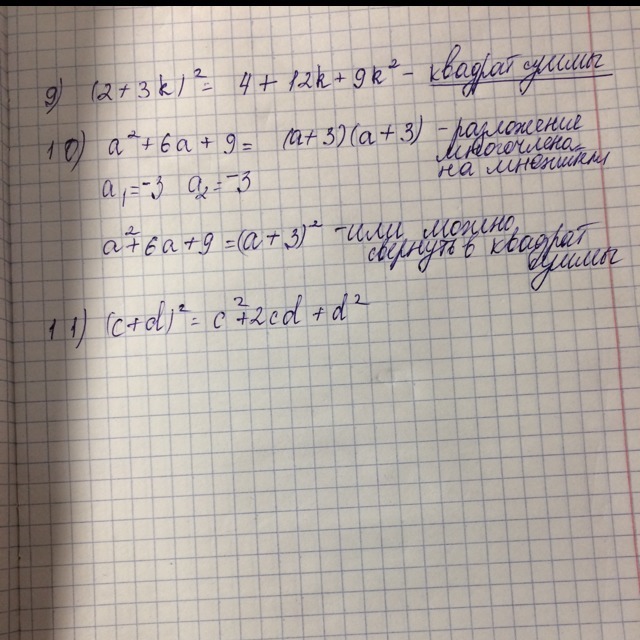 9) (2 + 3k)² = 4 + 12k + 9k² - квадрат суммы
10) a² + 6a + 9 = (a + 3)(a + 3) - разложение
многочлена
на множители
a₁ = -3 a₂ = -3
a² + 6a + 9 = (a + 3)² - или можно
свернуть в квадрат
суммы
11) (c + d)² = c² + 2cd + d²